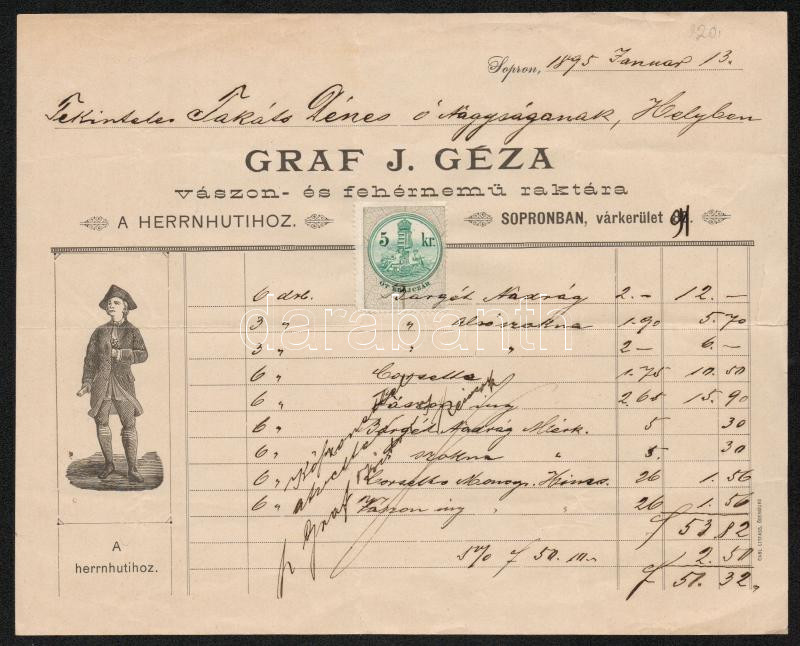 920.
Sopron, 1895 Januar 13.
Tekintetes Takáts Dénes ő Nagyságanak, Helyben
GRAF J. GÉZA
vászon- és fehérnemű raktára
A HERRNHUTIHOZ.
SOPRONBAN, várkerület 91.
5 kr.
ÖT KRAJCZÁR
6 drb. Bargét Nadrág 2.- 12.-
3 " " alsószokna 1.90 5.70
3 " " " 2- 6.-
6 " Corsetts 1.75 10.50
6 " Vászon ing 2.65 15.90
6 " Bargét Nadrág Merk. 5 30
6 " szokna " 5. 30
6 " Corsetts Monogr. Himz. 26 1.56
6 " Vászon ing " " 26 1.56
f 53.82
5% f 50.10.- 2.50
f 51.32
Köszönettel
p Graf
A
herrnhutihoz.
darabanth